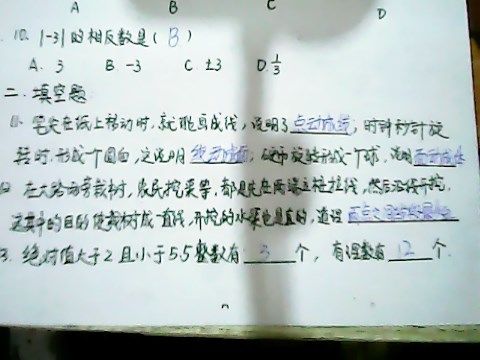 A B C D
10. |-3| 的相反数是 ( B )
A. 3 B. -3 C. ±3 D. 1/3
二. 填空题
笔尖在纸上移动时,就能写成线,说明了 点动成线; 时钟秒针旋
转时,形成一个圆面,这说明 线动成面; 硬币旋转形成一个球,说明 面动成体
在大路动旁栽树,农民挖渠等,都是先在两端立桩拉线,然后沿线开挖,
这其中的目的使栽树成一直线,开挖的水渠也是直的,道理 两点之间
3. 绝对值大于2且小于5.5整数有 3 个, 有理数有 12 个.